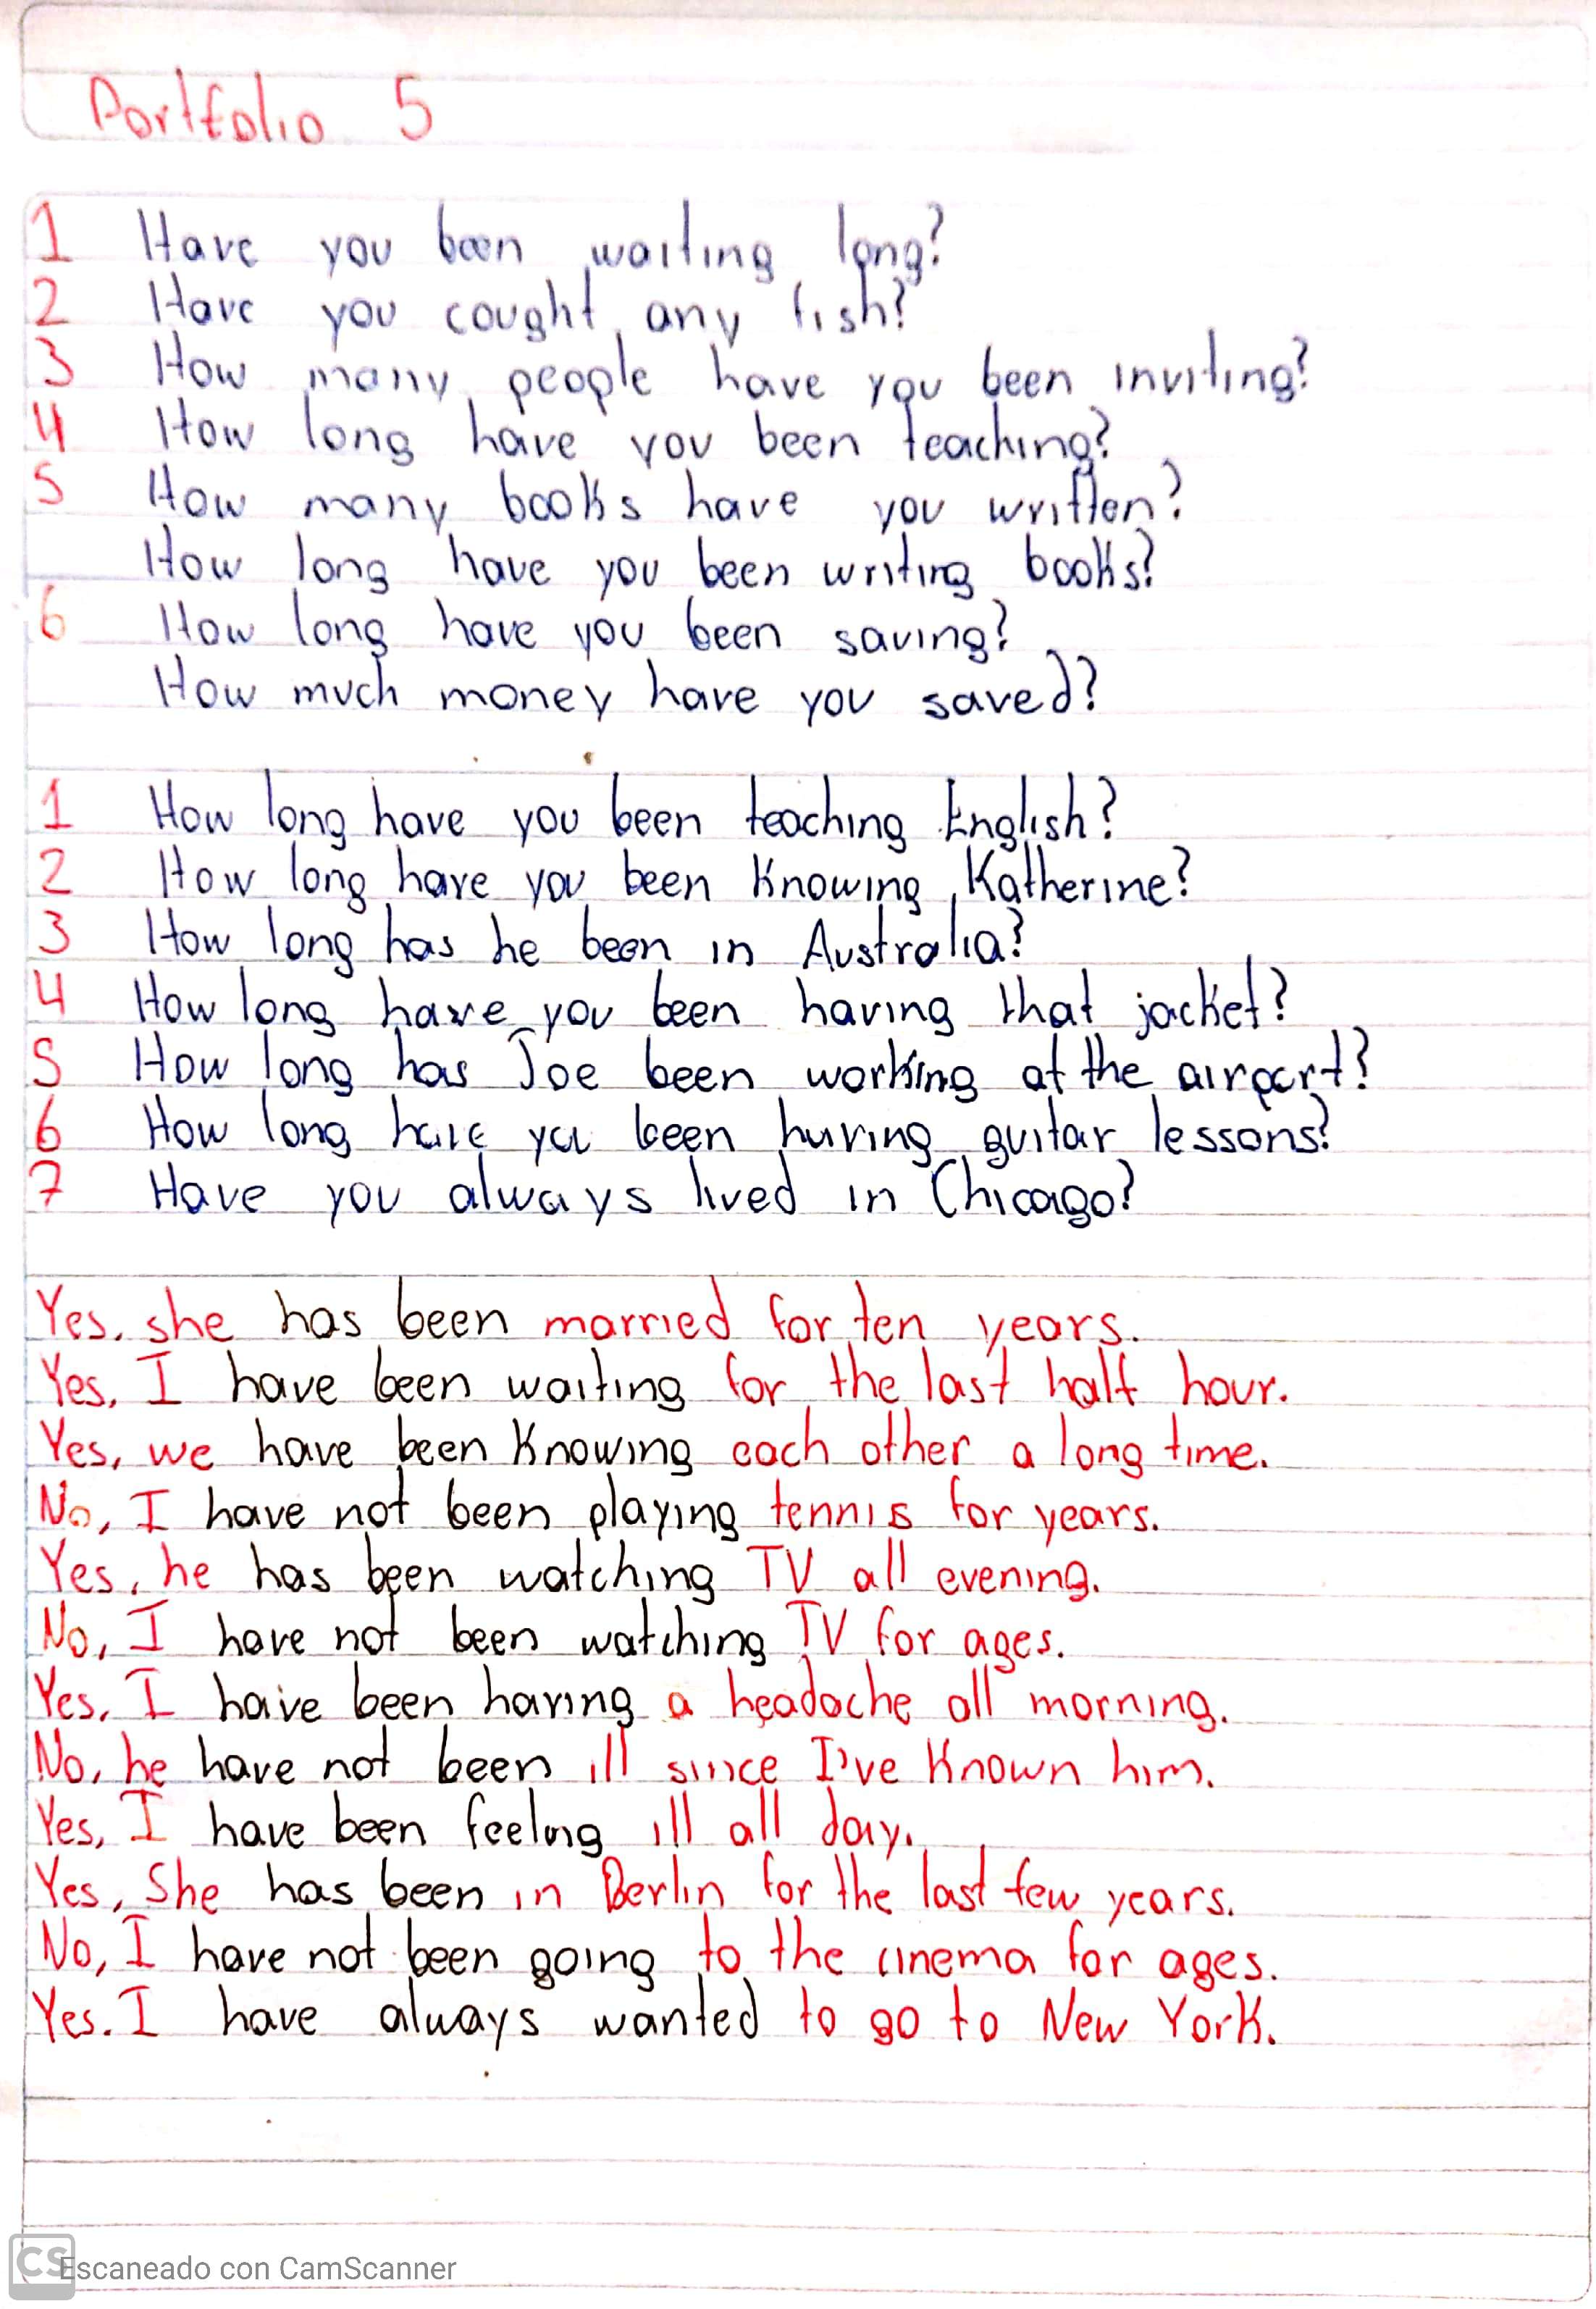 Portfolio 5
1 Have you been waiting long?
2 Have you cought any fish?
3 How many people have you been inviting?
4 How long have you been teaching?
5 How many books have you written?
How long have you been writing books?
6 How long have you been saving?
How much money have you saved?
1 How long have you been teaching English?
2 How long have you been Knowing Katherine?
3 How long has he been in Australia?
4 How long have you been having that jacket?
5 How long has Joe been working at the airport?
6 How long have you been having guitar lessons?
7 Have you always lived in Chicago?
Yes. she has been married for ten years.
Yes, I have been waiting for the last half hour.
Yes, we have been Knowing each other a long time.
No, I have not been playing tennis for years.
Yes, he has been watching TV all evening.
No, I have not been watching TV for ages.
Yes, I have been having a headache all morning.
No, he have not been ill since I've Known him.
Yes, I have been feelng ill all day.
Yes, She has been in Berlin for the last few years.
No, I have not been going to the cinema for ages.
Yes. I have always wanted to go to New York.
CS Escaneado con CamScanner